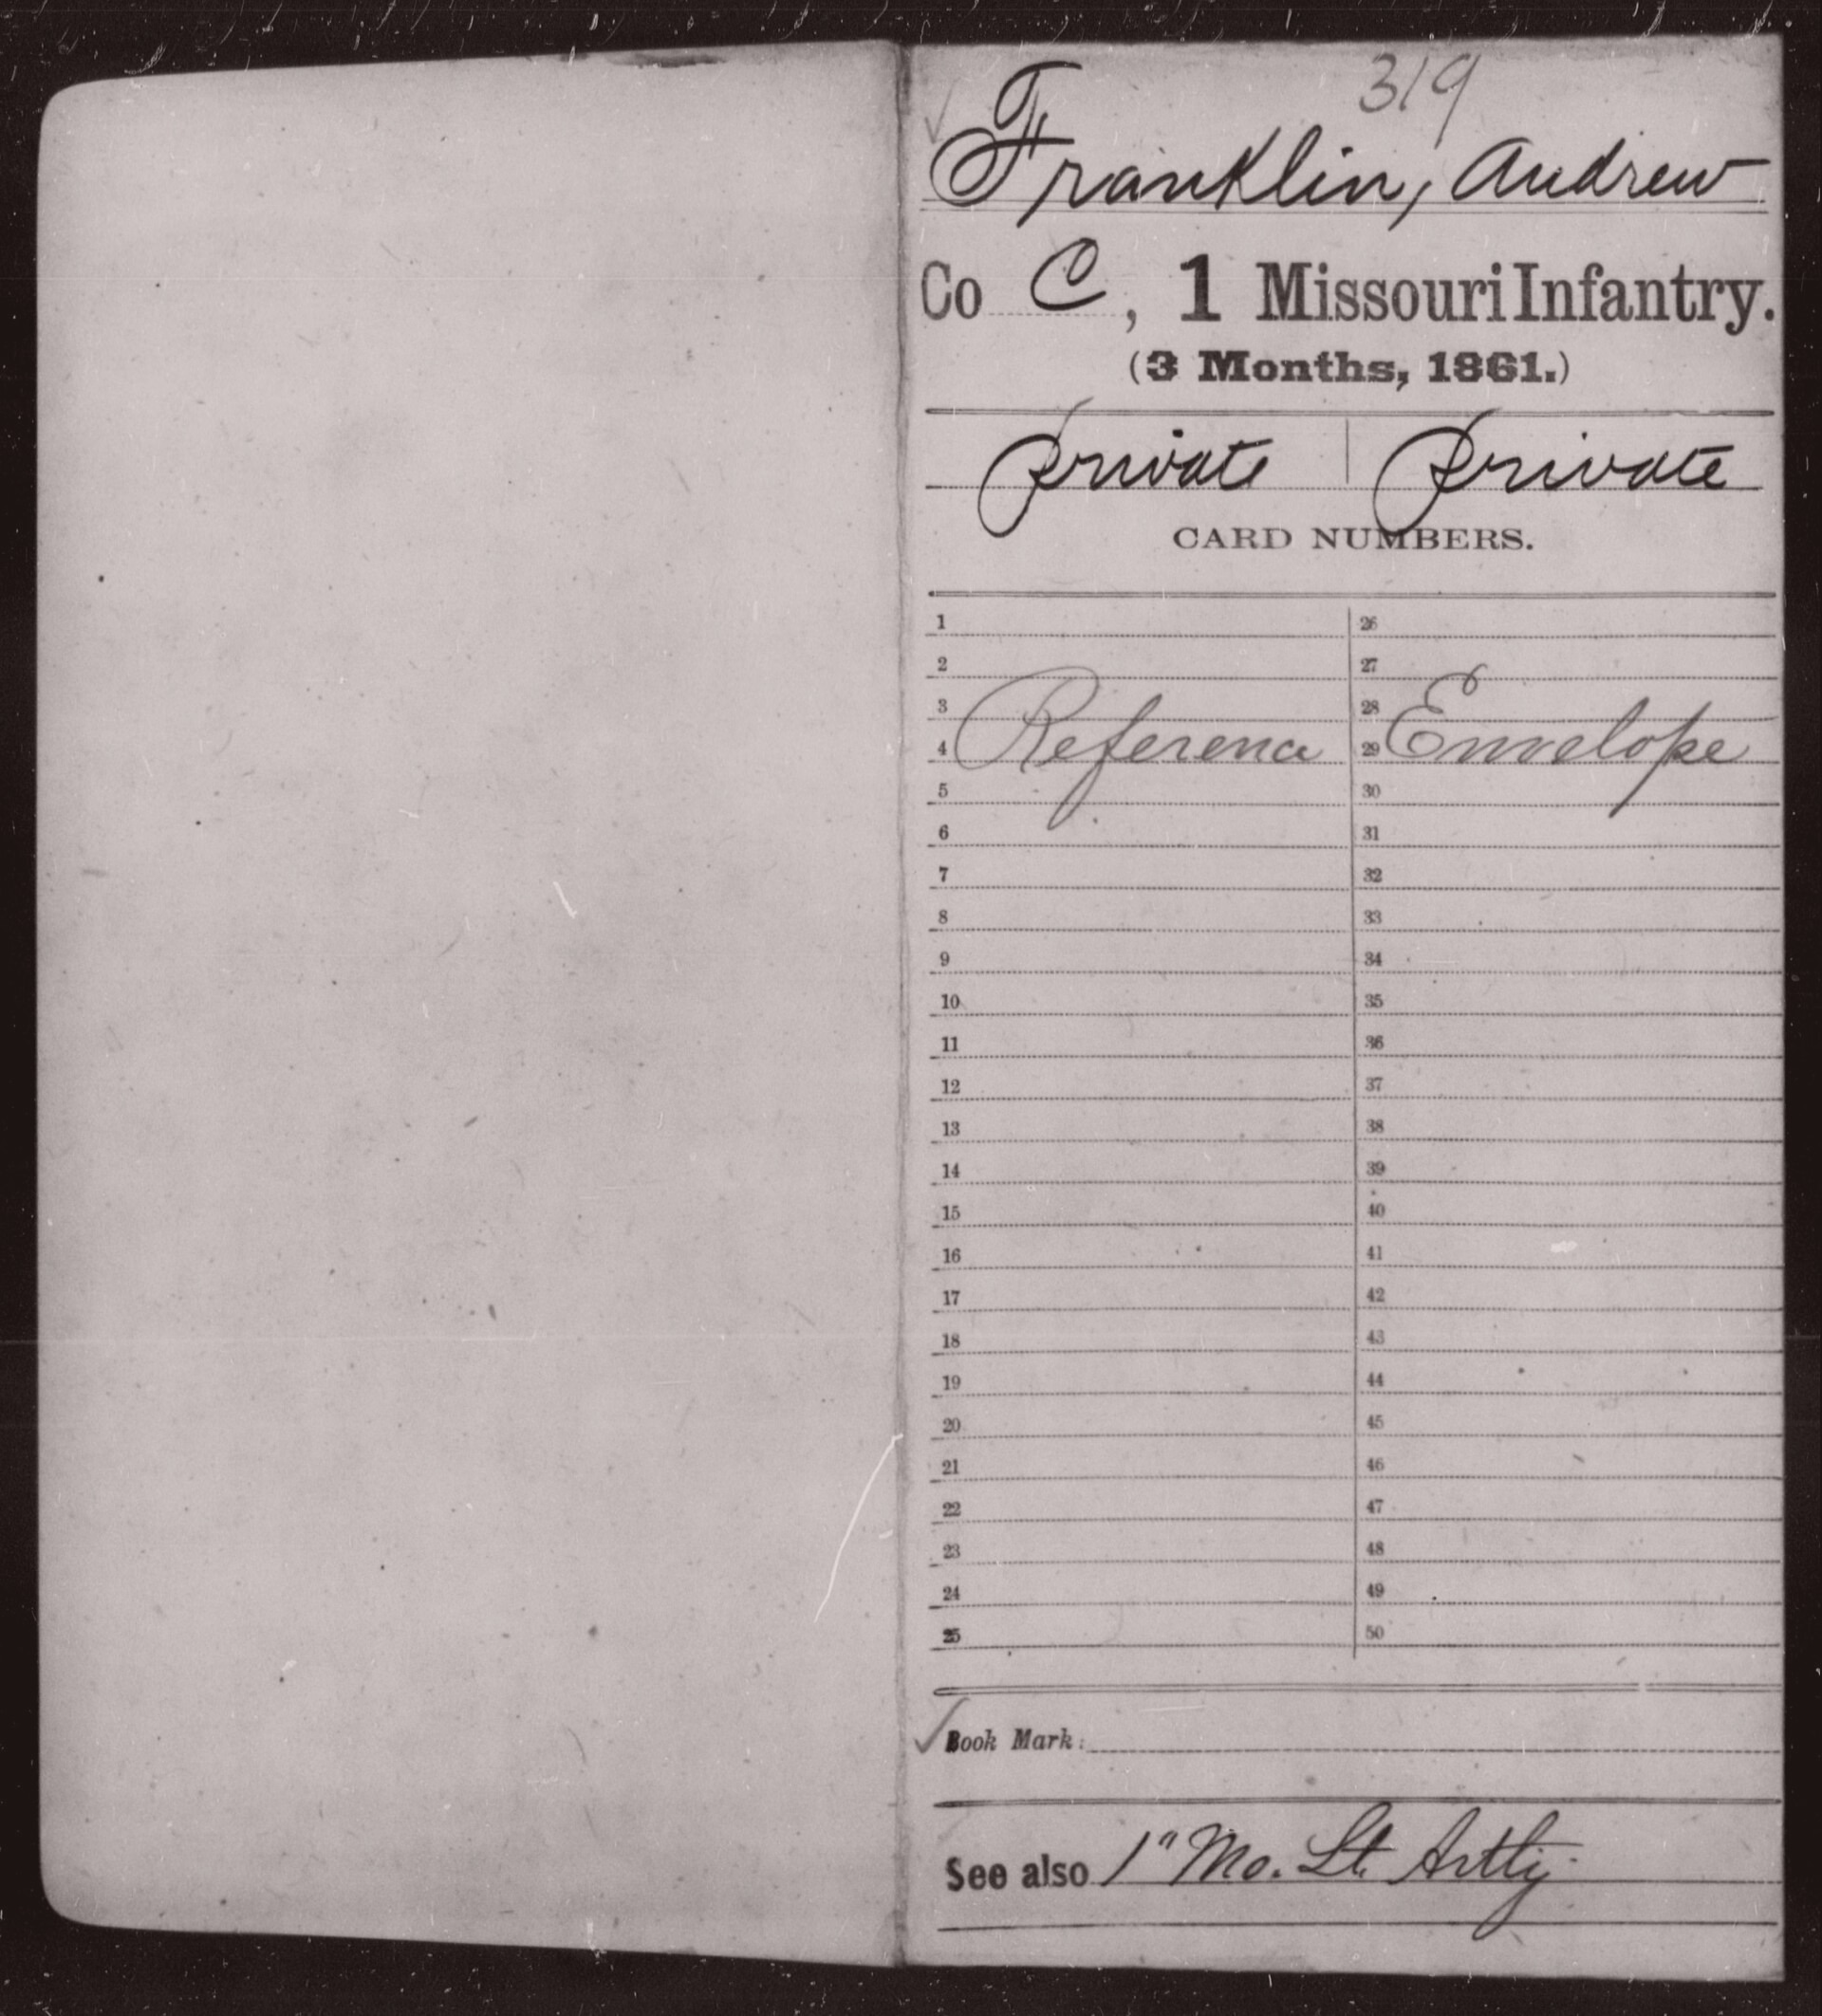 319
Franklin, Andrew
Co C, 1 Missouri Infantry.
(3 Months, 1861.)
Private | Private
CARD NUMBERS.
1 26
2 27
3 28
4 Reference 29 Envelope
5 30
6 31
7 32
8 33
9 34
10 35
11 36
12 37
13 38
14 39
15 40
16 41
17 42
18 43
19 44
20 45
21 46
22 47
23 48
24 49
25 50
Book Mark:
See also 1" Mo. Lt. Artty.